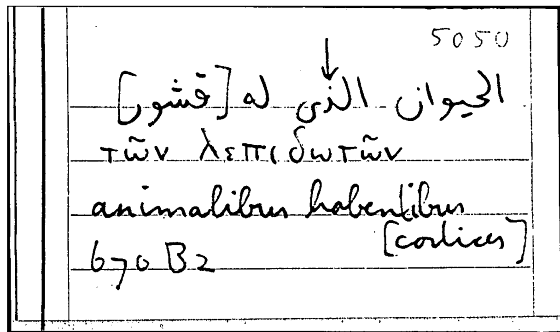 5050
↓
الحيوان الذى له [قشور]
τῶν λεπιδωτῶν
animalibus habentibus
[cortices]
670 B2